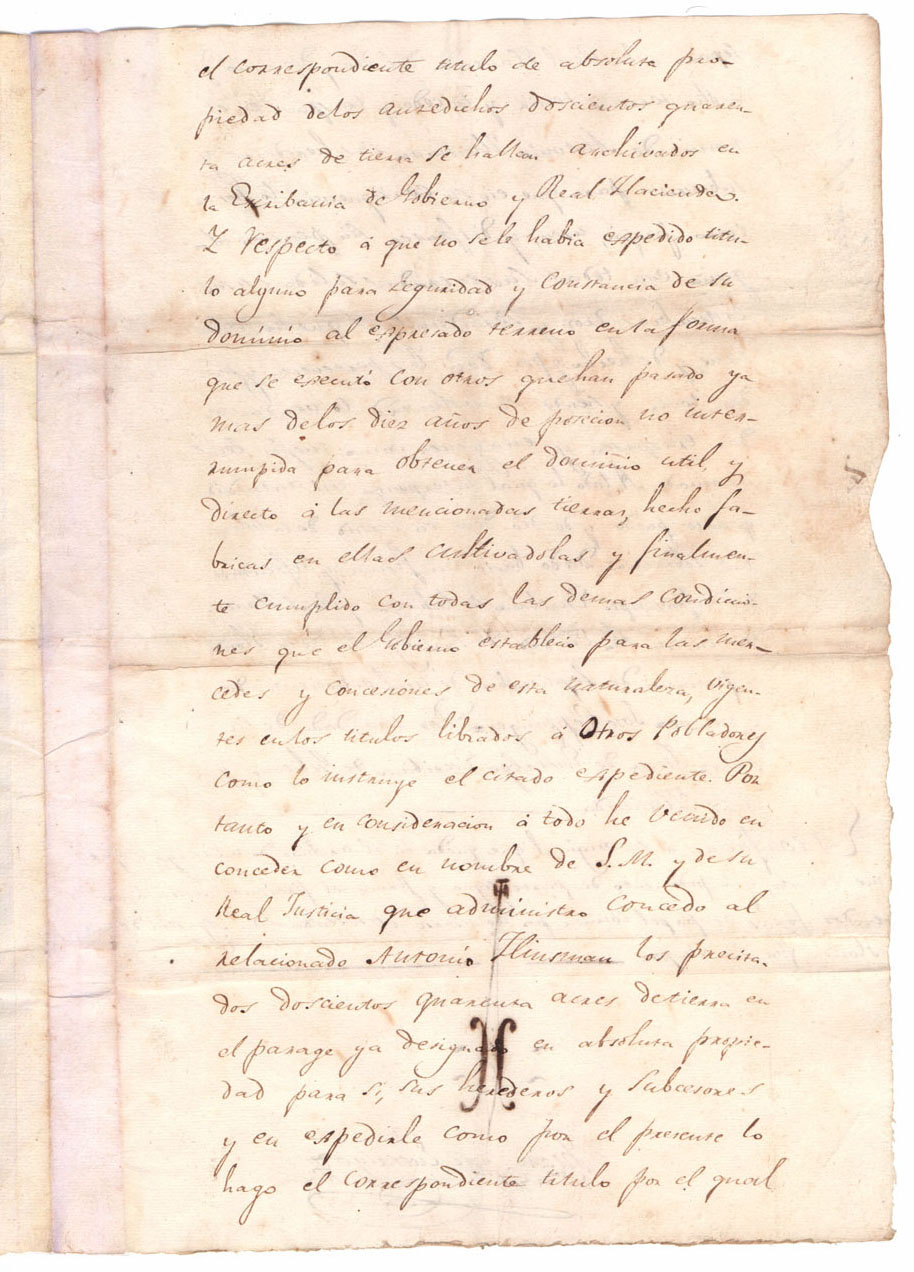 el correspondiente titulo de absoluta pro-
piedad delos antedichos doscientos quaren-
ta acres de tierra se hallan archivados en
la Escribania de Gobierno y Real Hacienda.
Y respecto á que no sele habia espedido titu-
lo alguno para seguridad y constancia de su
dominio al espresado terreno en la forma
que se executó con otros que han pasado ya
mas delos diez años de posecion no inter-
rumpida para obtener el dominio util, y
directo á las mencionadas tierras, hecho fa-
bricas en ellas cultivadolas y finalmen-
te cumplido con todas las demas condicio-
nes que el Gobierno establecio para las mer-
cedes y concesiones de esta naturaleza, vigen-
tes en los titulos librados á Otros Pobladores
como lo instruye el citado espediente. Por
tanto y en consideracion á todo he venido en
conceder como en nombre de S.M. y de su
Real Justicia que administro concedo al
relacionado Antonio Hinsman los precita-
dos doscientos quarenta acres detierra en
el parage ya designado en absoluta propie-
dad para si, sus herederos y subcesores
y en espedirle como por el presente lo
hago el correspondiente titulo por el qual